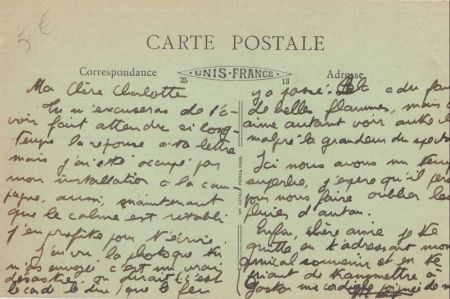 5€
CARTE POSTALE
Correspondance
25
UNIS-FRANCE
13
Adresse
Ma Chère Charlotte
Tu m'excuseras de t'a-
voir fait attendre si long-
temps la réponse à ta lettre
mais j'ai été occupé par
mon installation à la cam
pagne, aussi, maintenant
que le calme est rétabli
j'en profite pour t'écrire.
J'ai vu la photo que tu
m'as envoyé c'est un vrai
désastre, on dirait
le cas de dire que le feu
y a passé. Cela a du faire
de belles flammes, mais
aime autant voir autre
malgré la grandeur du spect
Ici nous avons un temps
superbe, j'espère qu'il
nous faire oublier les
pluies d'antan.
Enfin, chère amie je te
quitte en t'adressant mon
amical souvenir et en te
priant de transmettre à
Gaston ma cordiale poignée de m